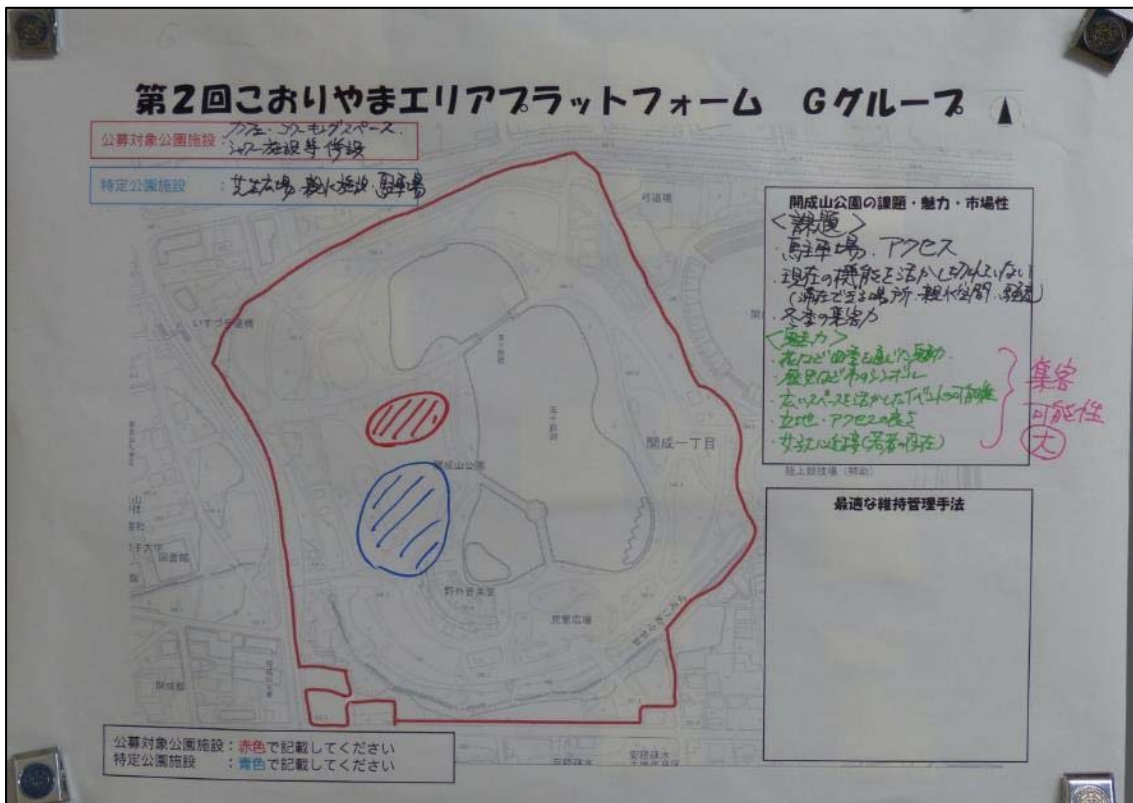 第2回こおりやまエリアプラットフォーム Gグループ
公募対象公園施設:カフェ・コワーキングスペース・
シャワー施設等併設
特定公園施設 :芝生広場・親水施設・駐車場
開成山公園の課題・魅力・市場性
<課題>
・駐車場、アクセス
・現在の機能を活かし切れていない
(滞在できる場所・親水空間・駐車場)
・冬季の集客力
<魅力>
・花など四季を通じた感動
・歴史など市のシンボル
・広いスペースを活かしたイベントの可能性
・立地・アクセスの良さ
・女子大近接(若者の存在)
集客
可能性
大
最適な維持管理手法
弓道場
いすづ歩道橋
五十鈴湖
開成山公園
開成一丁目
陸上競技場(補助)
野外音楽堂
児童広場
せせらぎこみち
図書館
開成館
安積疏水
公募対象公園施設:赤色で記載してください
特定公園施設 :青色で記載してください